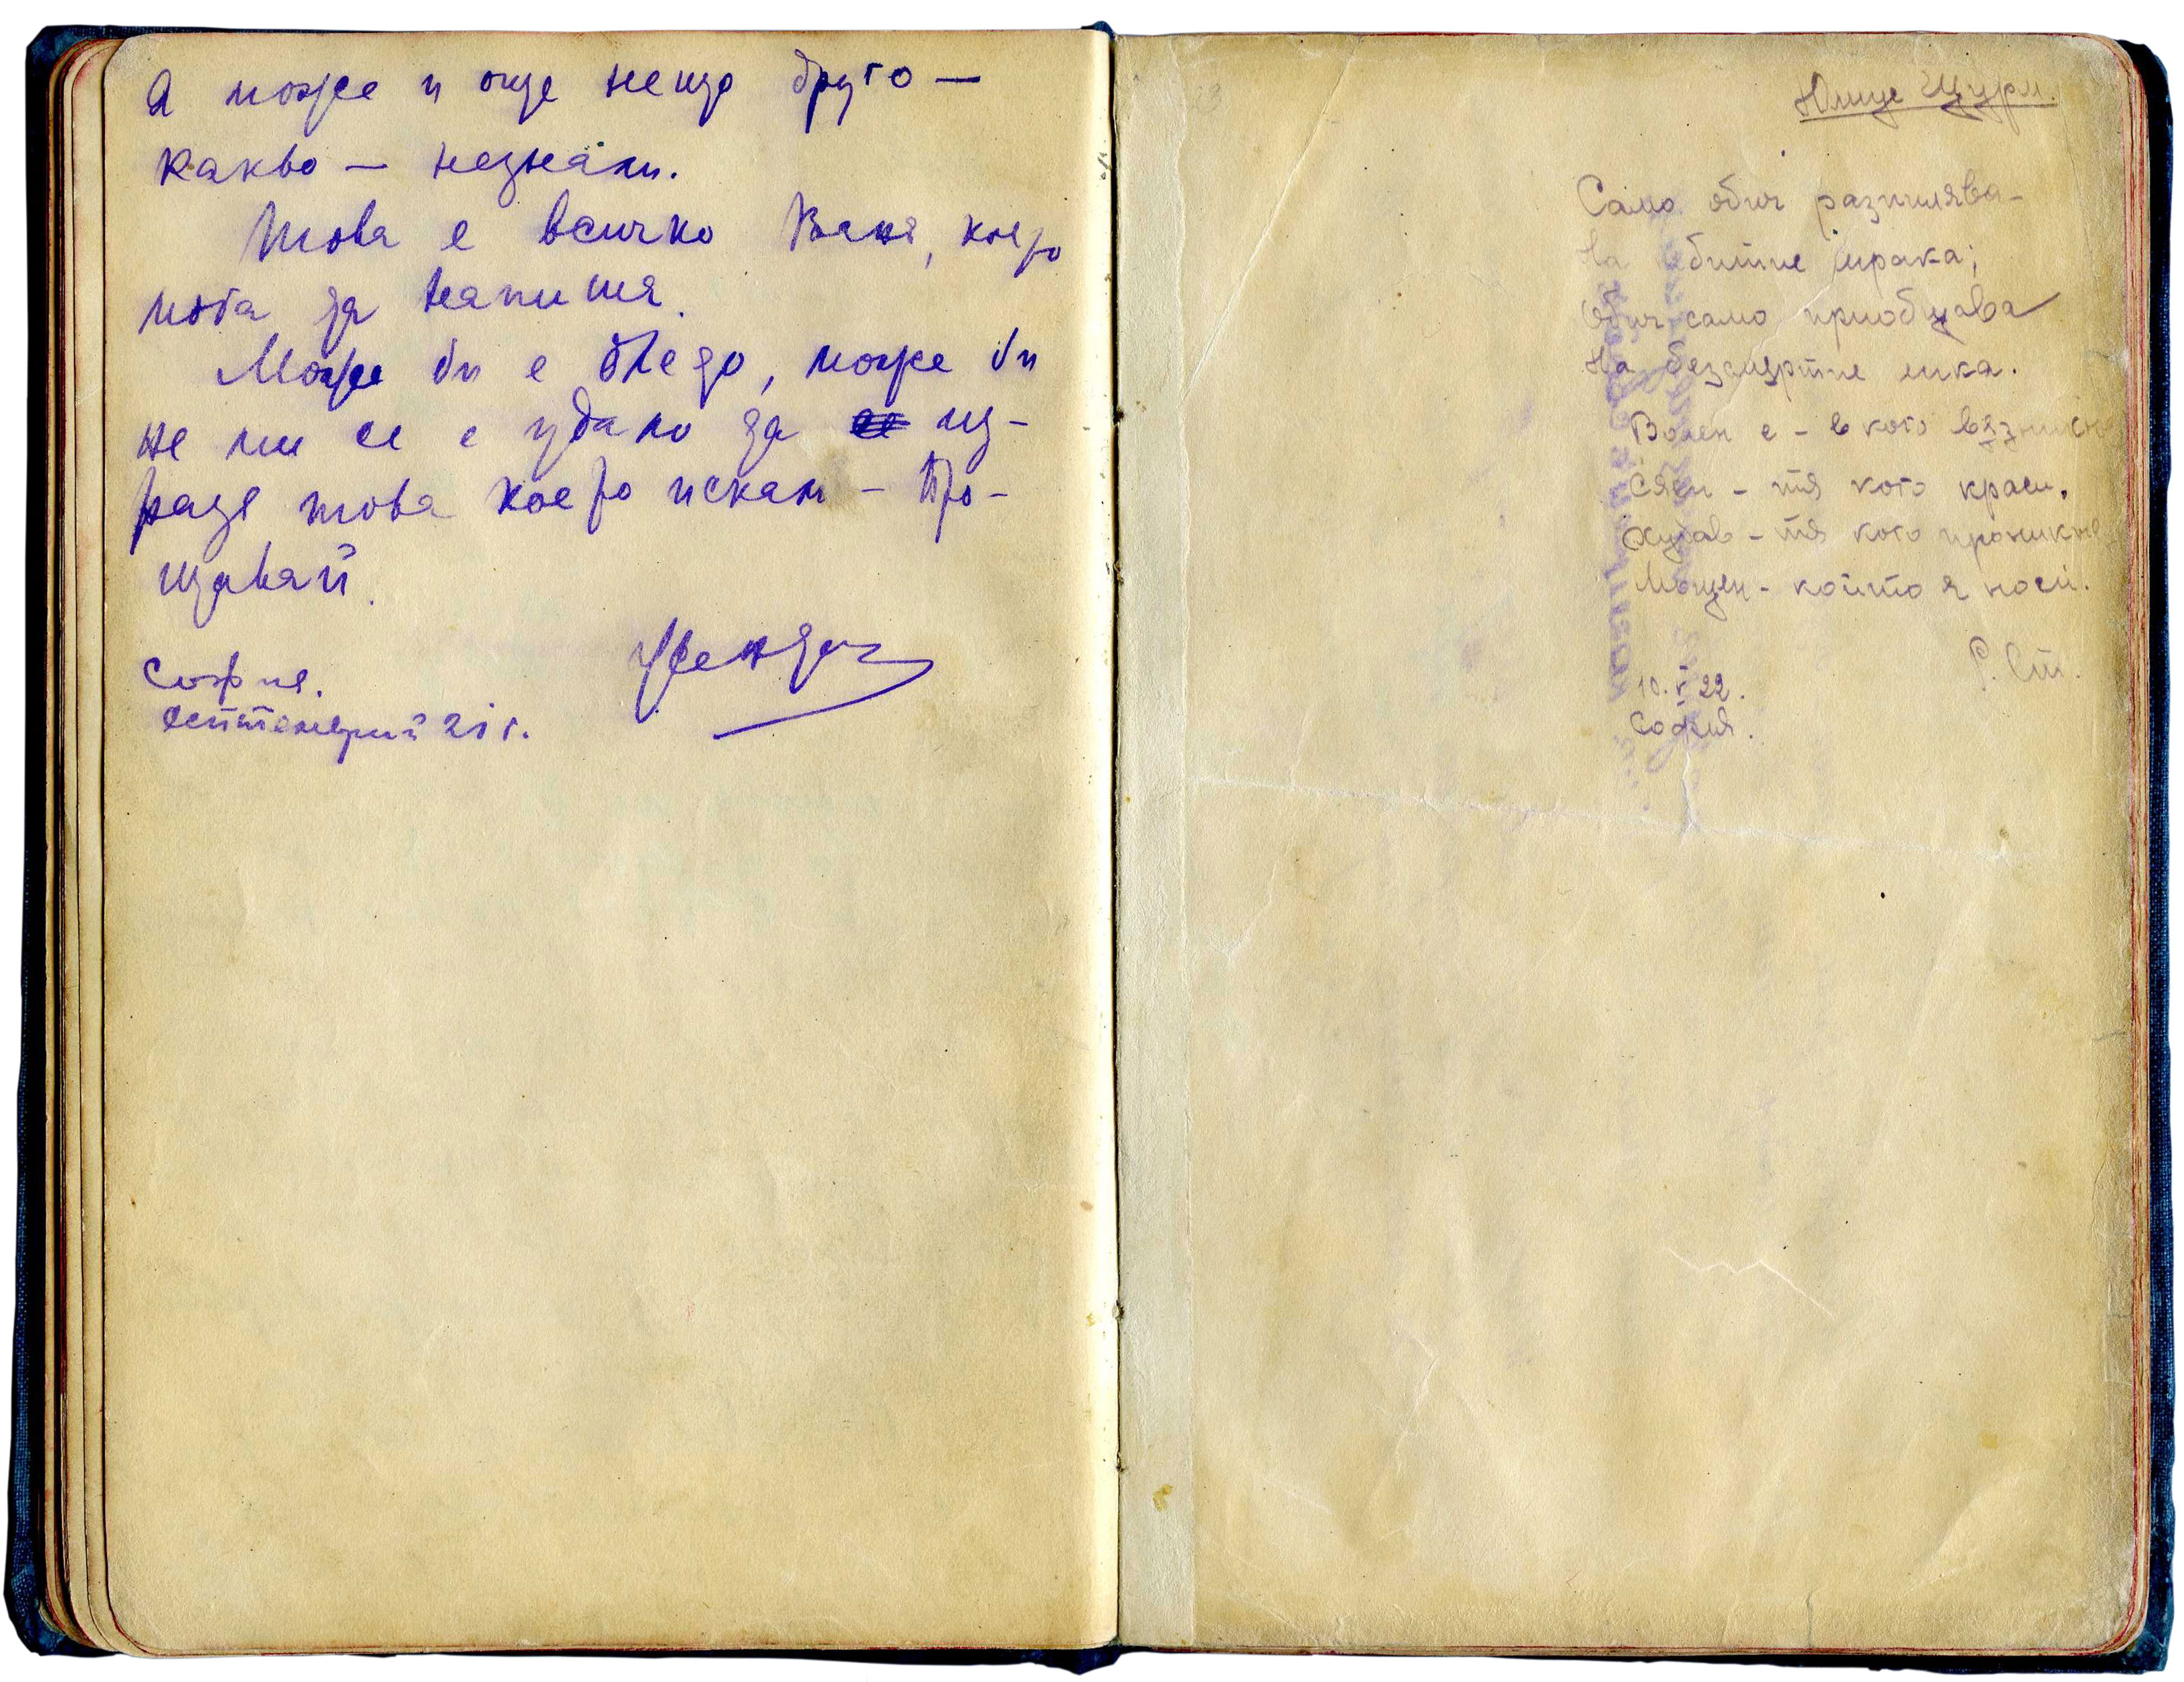 А може и още нещо друго —
какво — незнам.
Това е всичко Ваня, което
мога да напиша.
Може би е бледо, може би
не ми се е удало да из-
разя това което искам — Про-
щавай.
София.
септемврий 21 г.
Само обич разпилява —
На битие мрака;
Обич само приобщава
На безсмертие лика.
Волен е — в кого
Сяен — тя кого краси.
Хубав — тя кого проникне
Мощен — който я носи.
Р. Ст.
10. V 22.
София.